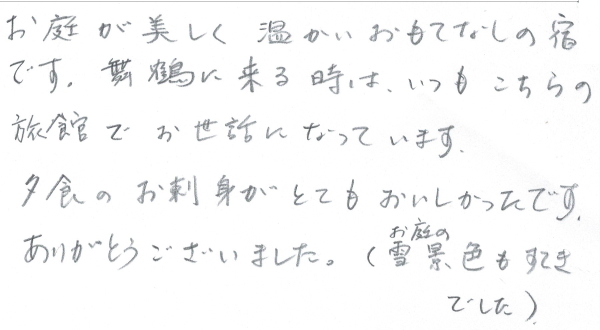 お庭が美しく温かいおもてなしの宿
です。舞鶴に来る時は、いつもこちらの
旅館でお世話になっています。
夕食のお刺身がとてもおいしかったです。
ありがとうございました。(お庭の雪景色もすてき
でした)